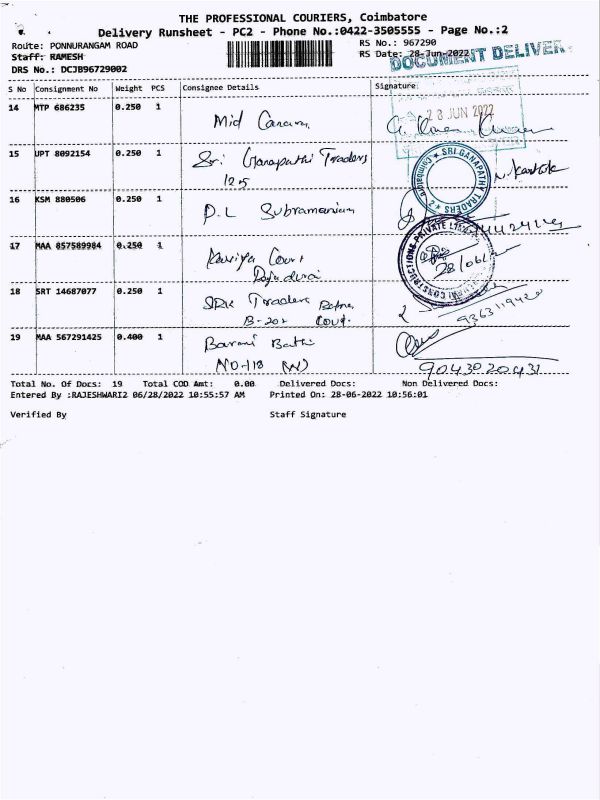 THE PROFESSIONAL COURIERS, Coimbatore
Delivery Runsheet - PC2 - Phone No.:0422-3505555 - Page No.:2
Route: PONNURANGAM ROAD
RS No.: 967290
Staff: RAMESH
RS Date: 28-Jun-2022
DOCUMENT DELIVER
DRS No.: DCJB96729002
S No Consignment No Weight PCS Consignee Details Signature
28 JUN 2022
14 MTP 686235 0.250 1 Mid
15 UPT 8092154 0.250 1 Sri Ganapathi Traders
1205
SRI GANAPATHI TRADERS
16 KSM 880506 0.250 1 D.L Subramaniam
17 MAA 857589984 0.250 1 Court
CONSTRUCTIONS PRIVATE
28/06/
18 SRT 14687077 0.250 1 SRK Traders
B-202 Court
9363119420
19 MAA 567291425 0.400 1 Barani
NO-118 (W)
9043020431
Total No. Of Docs: 19 Total COD Amt: 0.00 Delivered Docs: Non Delivered Docs:
Entered By :RAJESHWARI2 06/28/2022 10:55:57 AM Printed On: 28-06-2022 10:56:01
Verified By Staff Signature